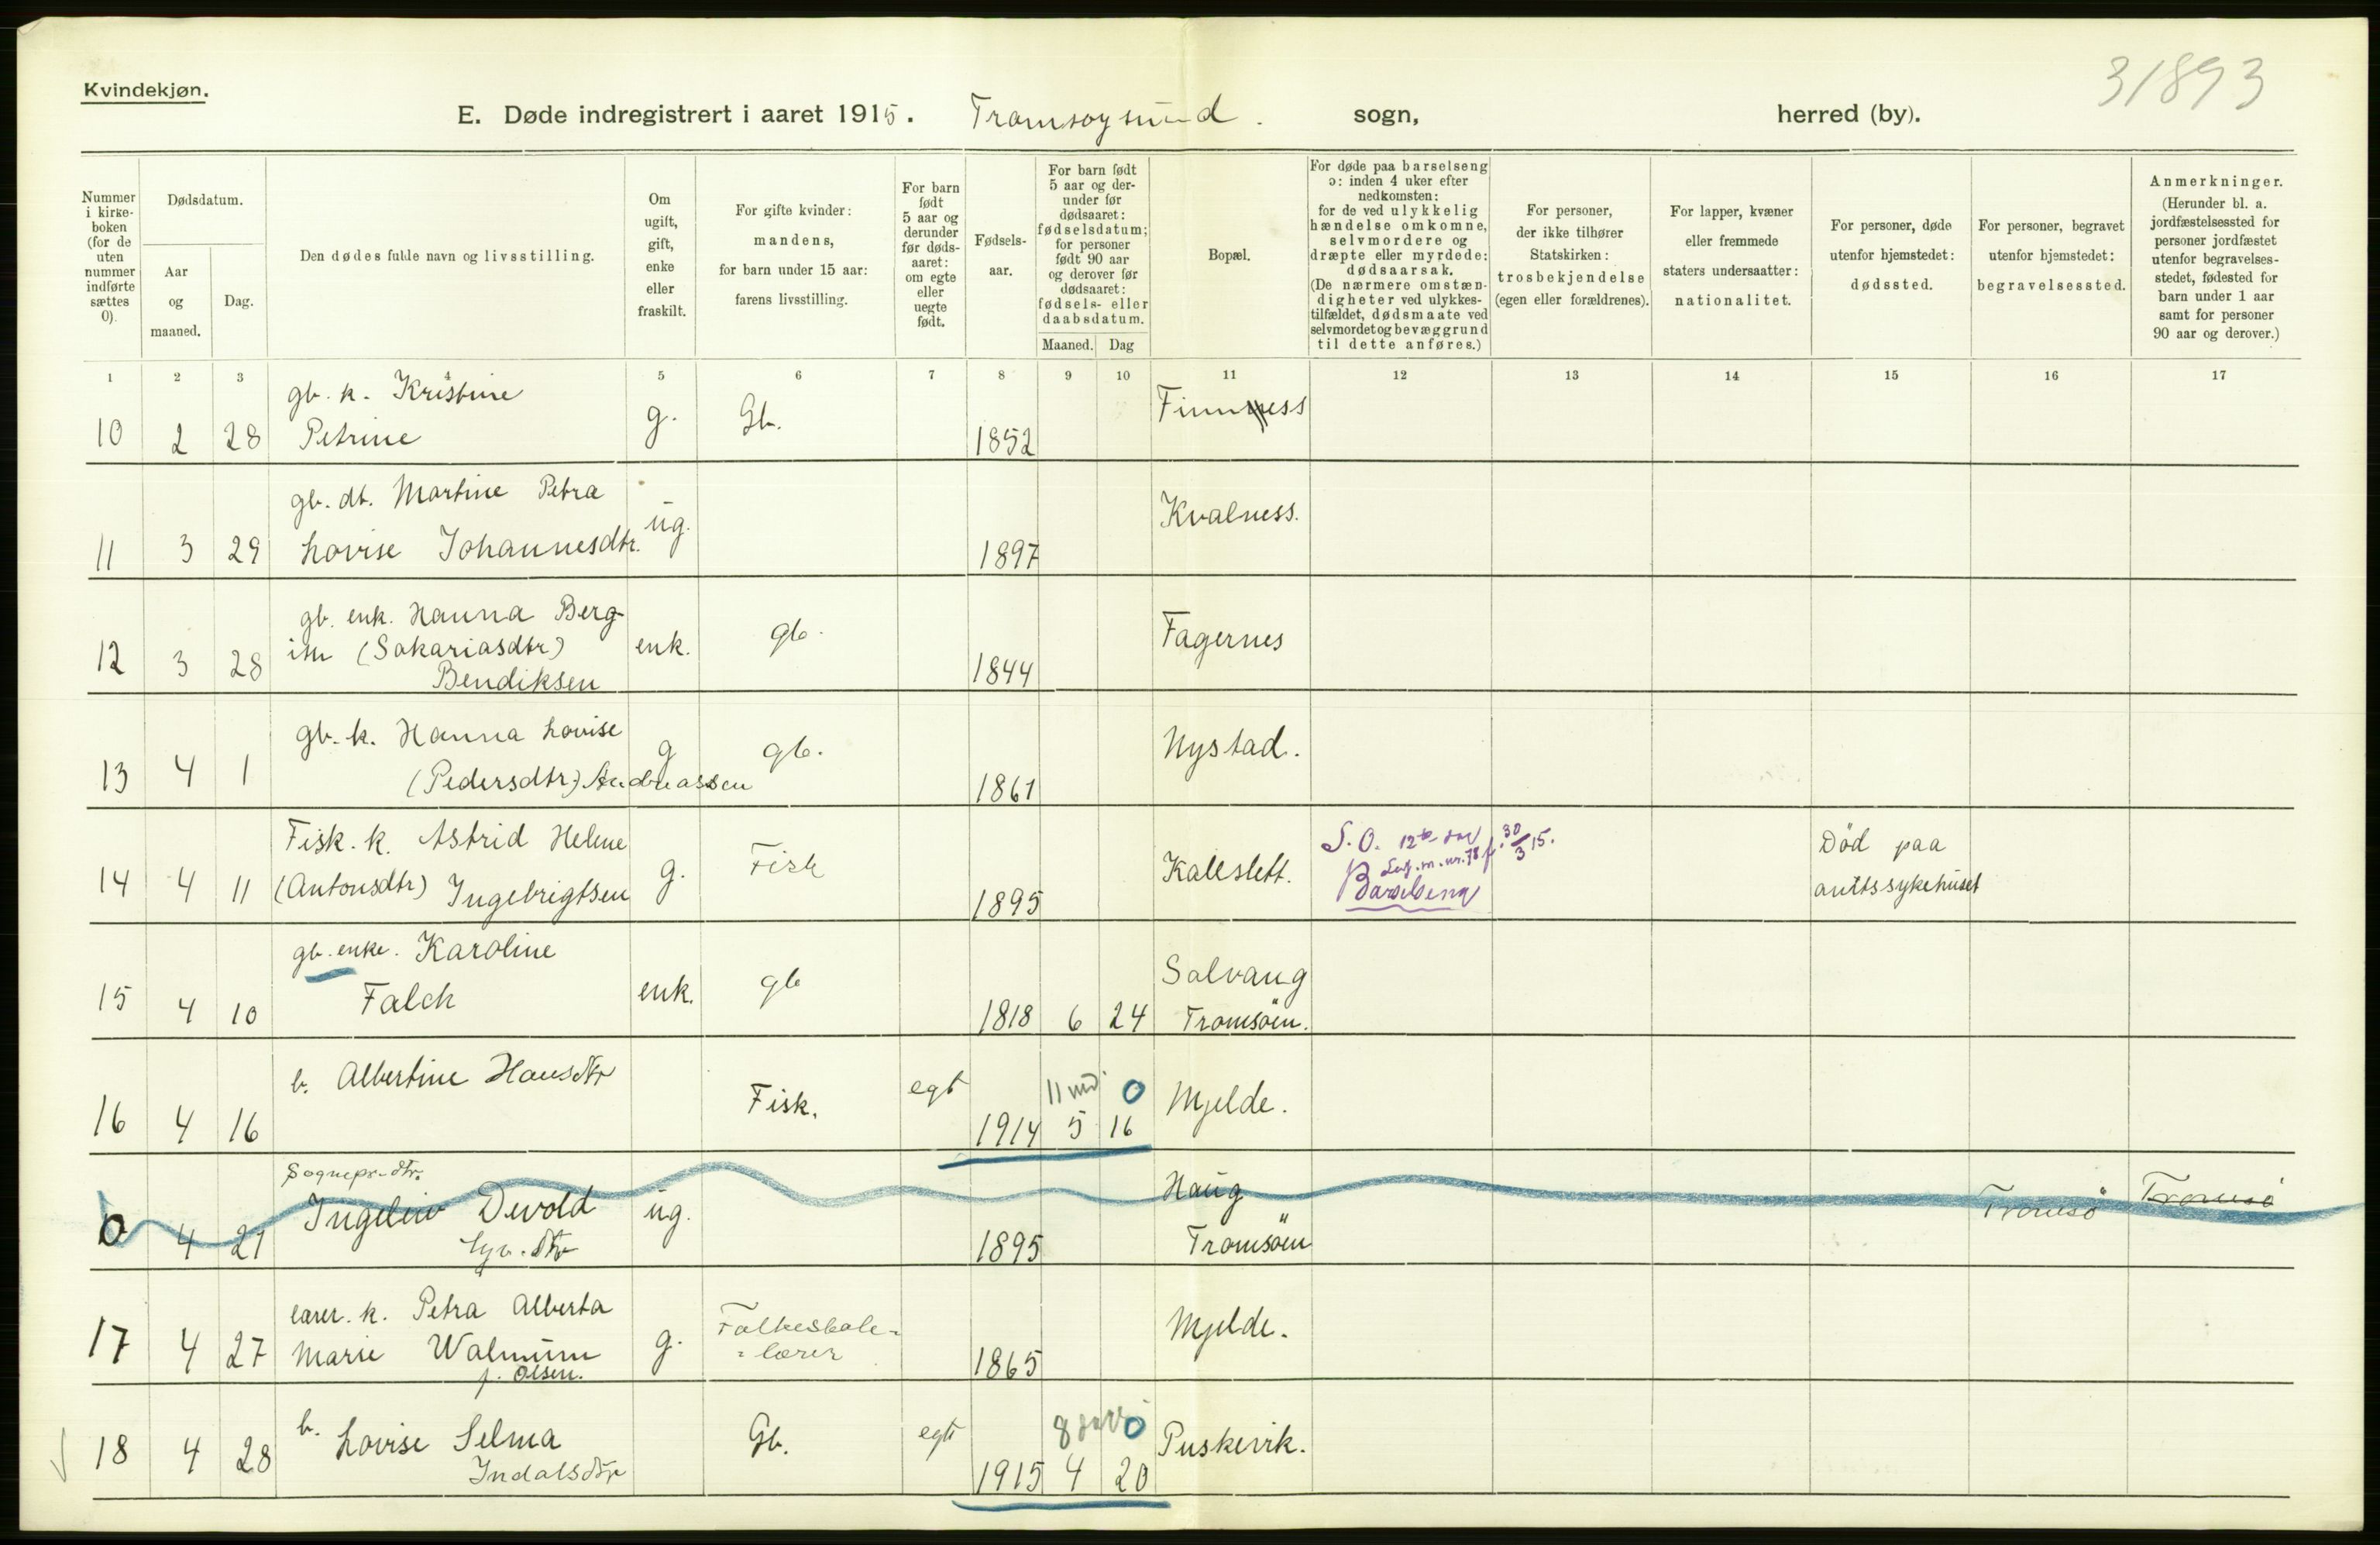 31893
Kvindekjøn.
E. Døde indregistrert i aaret 1915. Tromsøysund. sogn, herred (by).
Nummer i kirke-
boken
(for de
uten
nummer
indførte
sættes
0).
Dødsdatum.
Aar
og
maaned.
Dag.
Den dødes fulde navn og livsstilling.
Om
ugift,
gift,
enke
eller
fraskilt.
For gifte kvinder:
mandens,
for barn under 15 aar:
farens livsstilling.
For barn
født
5 aar og
derunder
før døds-
aaret:
om egte
eller
uegte
født.
Fødsels-
aar.
For barn født
5 aar og der-
under før
dødsaaret:
fødselsdatum;
for personer
født 90 aar
og derover før
dødsaaret:
fødsels- eller
daabsdatum.
Maaned. Dag
Bopæl.
For døde paa barselseng
ɔ: inden 4 uker efter
nedkomsten:
for de ved ulykkelig
hændelse omkomne,
selvmordere og
dræpte eller myrdede:
dødsaarsak.
(De nærmere omstæn-
digheter ved ulykkes-
tilfældet, dødsmaate ved
selvmordet og bevæggrund
til dette anføres.)
For personer,
der ikke tilhører
Statskirken:
trosbekjendelse
(egen eller forældrenes).
For lapper, kvæner
eller fremmede
staters undersaatter:
nationalitet.
For personer, døde
utenfor hjemstedet:
dødssted.
For personer, begravet
utenfor hjemstedet:
begravelsessted.
Anmerkninger.
(Herunder bl. a.
jordfæstelsessted for
personer jordfæstet
utenfor begravelses-
stedet, fødested for
barn under 1 aar
samt for personer
90 aar og derover.)
1 2 3 4 5 6 7 8 9 10 11 12 13 14 15 16 17
gb. k. Kristine
10 2 28 Petrine g. Gb. 1852 Finnness
gb. dt. Martine Petra
11 3 29 Lovise Johannesdtr. ug. 1897 Kvalness.
gb. enk. Hanna Berg-
12 3 28 itte (Sakariasdtr) enk. gb. 1844 Fagernes
Bendiksen
gb. k. Hanna Lovise
13 4 1 (Pedersdtr) Andreassen g gb. 1861 Nystad.
Fisk. k. Astrid Helene
14 4 11 (Antonsdtr) Ingebrigtsen g. Fisk 1895 Kaleslett.
S.O. 12te
nr. 78 f. 30/3 15.
Barselseng
Død paa
amtssykehuset
gb. enke. Karoline
15 4 10 Falck enk. gb 1818 6 24 Solvang
Tromsøen.
b. Albertine Hansdtr
16 4 16 Fisk. egt 1914 5 16 Mjelde.
11 md. 0
Sognepr. dtr.
0 4 21 Ingeliv Devold ug. 1895 Haug
Tromsøen Tromsø Tromsø
lærer. k. Petra Alberta
17 4 27 Marie Walnum g. Folkeskole-
=lærer 1865 Mjelde.
f. Olsen.
b. Lovise Selma
18 4 28 Indalsdtr Gb. egt 1915 4 20 Puskevik.
8 0